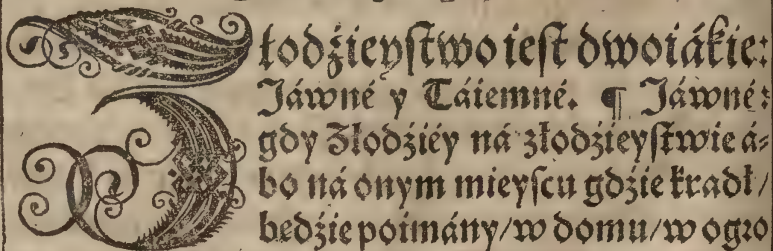 Złodźieyſtwo ieſt dwoiákie:
Jáwné y Táiemné. ¶ Jáwné:
gdy Złodźiéy ná złodźieyſtwie á⸗
bo ná onym mieyſcu gdźie kradł/
bedźie poimány/ w domu/ w ogro